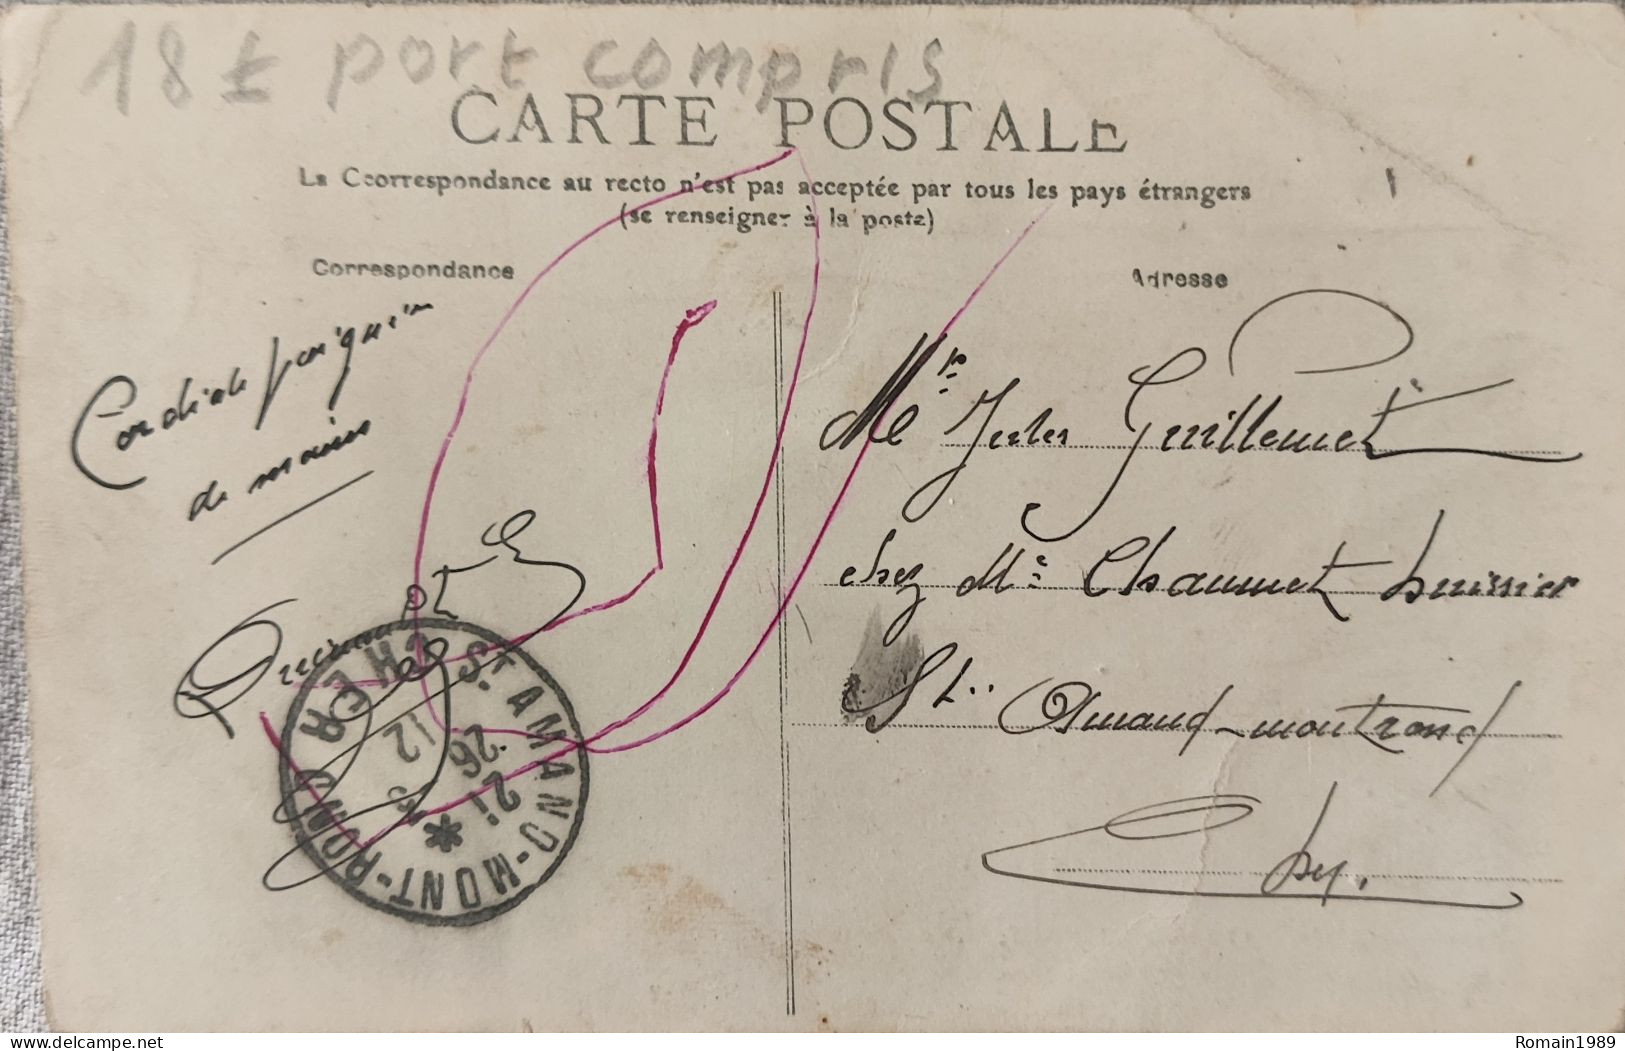 18 € port compris
CARTE POSTALE
La Ccorrespondance au recto n'est pas acceptée par tous les pays étrangers
(se renseigner à la poste)
Correspondance
Adresse
Cordiale
de mains
Mr Jules Guillemet
chez Me Chaumet huissier
St. Amand-montrond
Cher.
ST AMAND-MONT-ROND CHER
21
26 12
www.delcampe.net
Romain1989